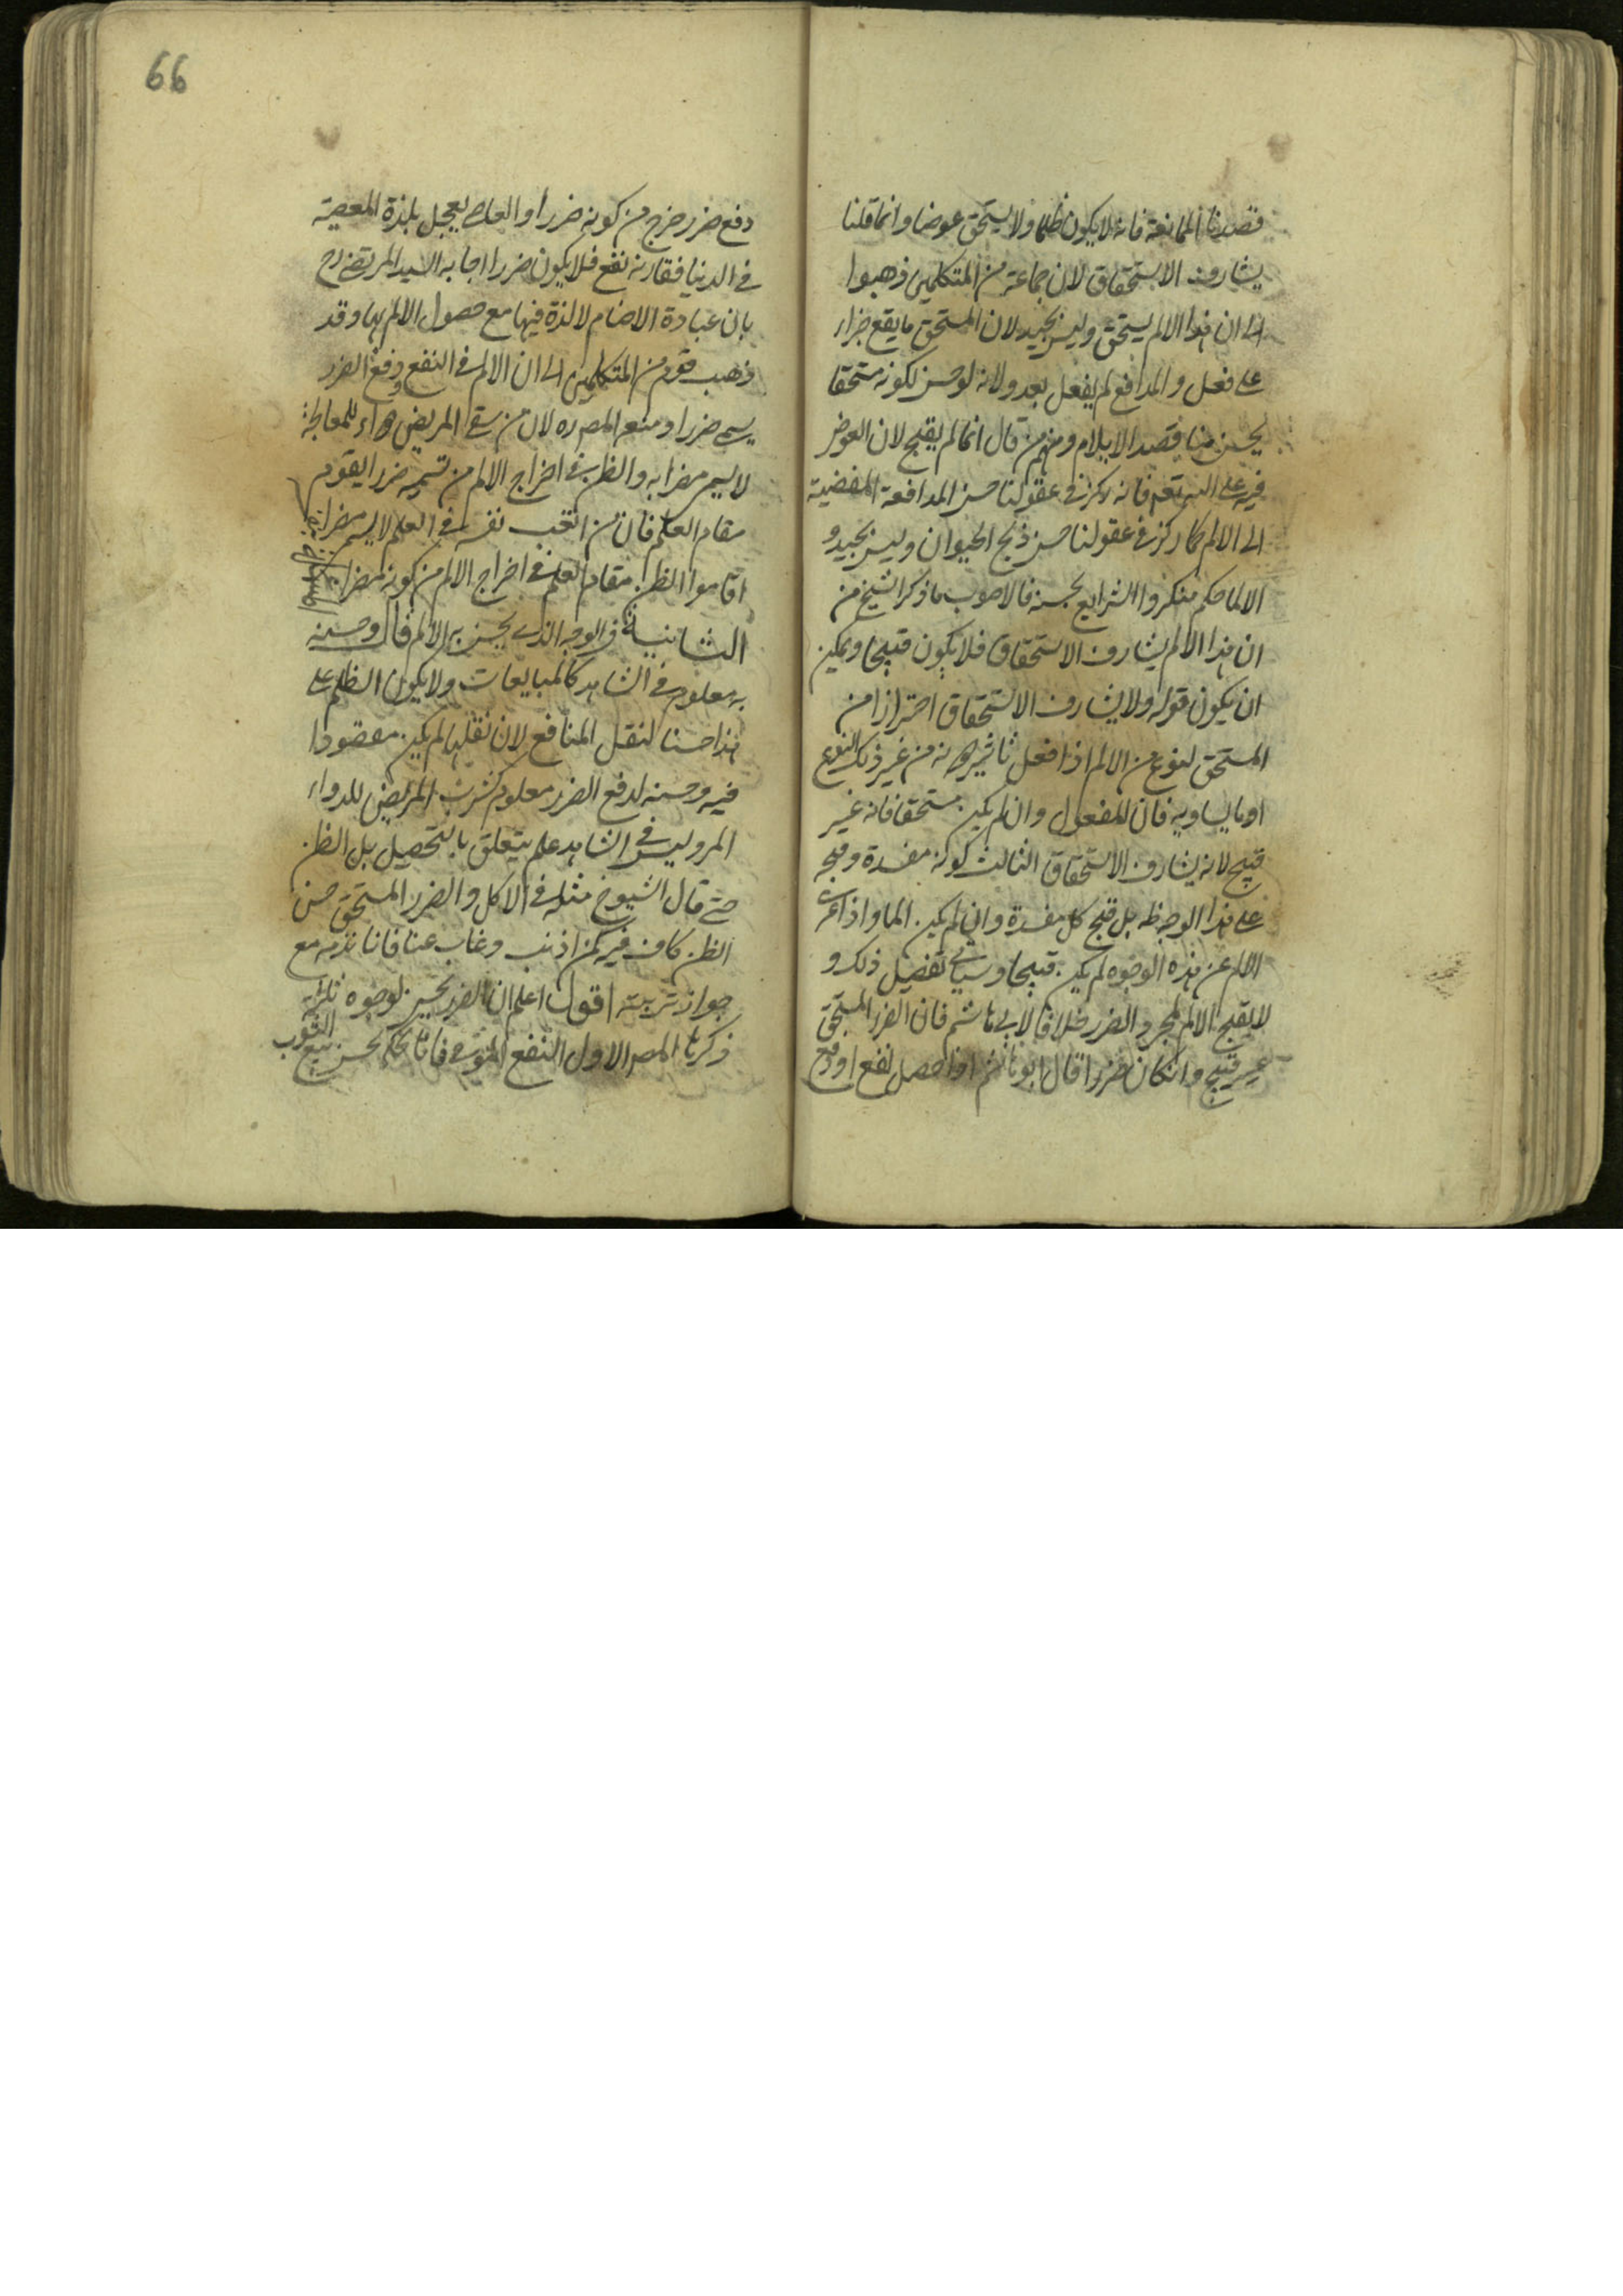 قصدنا الممانعة فانه لا يكون ظلما ولا يستحق عوضا وانما قلنا
يشارف الاستحقاق لان جماعة من المتكلمين ذهبوا
الى ان هذا الالم يستحق وليس بجيد لان المستحق ما يقع جزاء
على فعل والمدافع لم يفعل بعد ولانه لو حسن لكونه مستحقا
لحسن منا قصد الايلام ومنهم من قال انما لم يقبح لان العوض
فيه على الله تعم فانه ركز في عقولنا حسن المدافعة المفضية
الى الالم كما ركز في عقولنا حسن ذبح الحيوان وليس بجيد و
الا لما حكم منكروا الشرايع بحسنه فالاصوب ما ذكره الشيخ من
ان هذا الالم يشارف الاستحقاق فلا يكون قبيحا ويمكن
ان يكون قوله ولا يشارف الاستحقاق احترازا من
المستحق لنوع من الالم اذا فعل من غير ذلك النوع
او ما يساويه فان المفعول وان لم يكن مستحقا فانه غير
قبيح لانه يشارف الاستحقاق الثالث كونه مفسدة وقبح
على هذا الوجه ظ بل قبح كل مفسدة وان لم يكن الما واذا عرى
الالم عن هذه الوجوه لم يكن قبيحا وسياتي تفصيل ذلك و
لا يقبح الالم لمجرد الضرر خلافا لابي هاشم فان الضرر المستحق
غير قبيح وان كان ضررا قال ابو هاشم اذا حصل نفع او دفع
66
دفع ضرر خرج من كونه ضررا والعاصي يعجل بلذة المعصية
في الدنيا فقارنه نفع فلا يكون ضررا اجابه السيد المرتضى رح
بان عبادة الاصنام لا لذة فيها مع حصول الالم بها وقد
ذهب قوم من المتكلمين الى ان الالم في النفع ودفع الضرر
يسمى ضررا ومنع المص ره لان من سقى المريض دواء للمعالجة
لا يسمى مضرا به والظن في اخراج الالم من تسميته ضررا يقوم
مقام العلم فان من اتعب نفسه في العلم لا يسمى مضرا
اقاموا الظن مقام العلم في اخراج الالم من كونه مضرا
الثانية في الوجه الذي يحسن به الالم قال وحسنه
به معلوم في الشاهد كالمبايعات ولا يكون الظلم على
هذا حسنا لنقل المنافع لان نقلها لم يكن مقصودا
فيه وحسنه لدفع الضرر معلوم كشرب المريض للدواء
المر وليس في الشاهد علم يتعلق بالتحصيل بل الظن
حتى قال الشيوخ مثله في الاكل والضرر المستحق حسن
الظن كاف فيه كمن اذنب وغاب عنا فانا نذمه مع
جواز توبته اقول اعلم ان الضرر يحسن لوجوه ثلثة
ذكرها المص الاول النفع الموفى فانا نحكم بحسن بيع الثوب